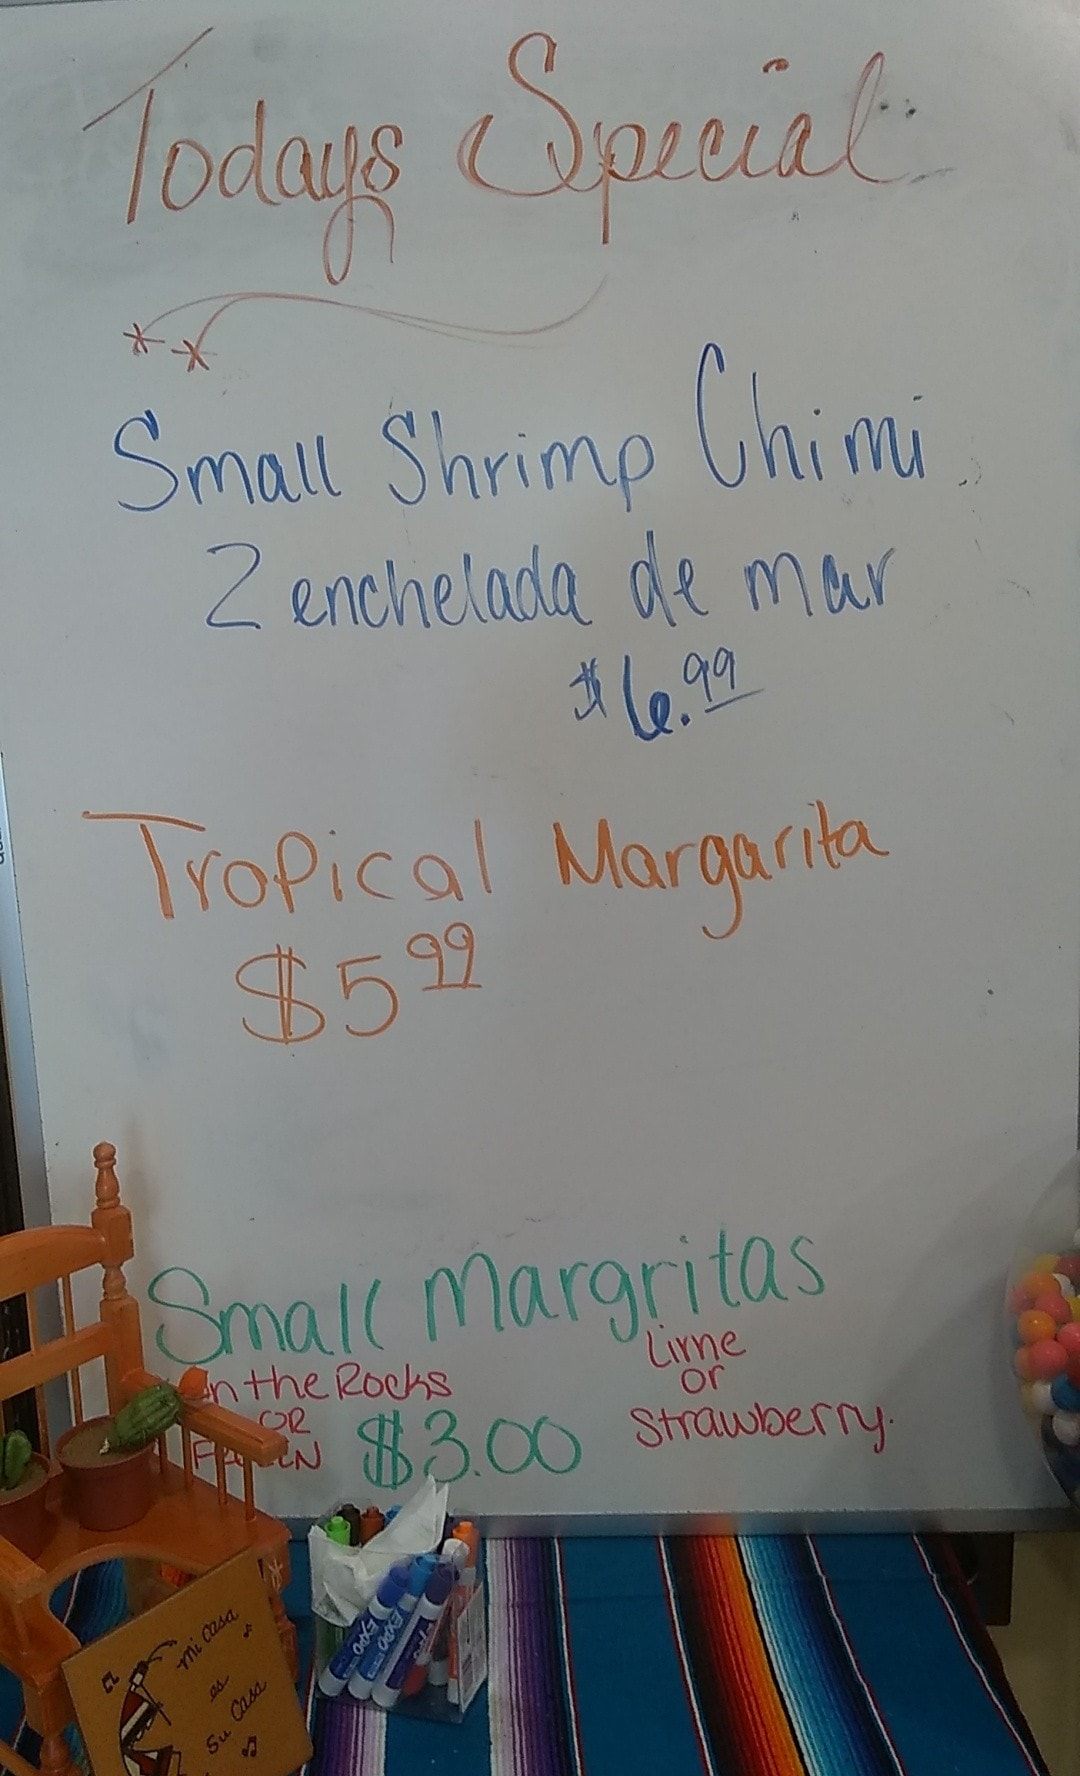 Todays Special
Small Shrimp Chimi
2 enchelada de mar
$6.99
Tropical Margarita
$5 99
Small Margritas
on the Rocks
OR
$3.00
Lime
or
Strawberry.
EXPO
EXPO
mi casa
es
su casa